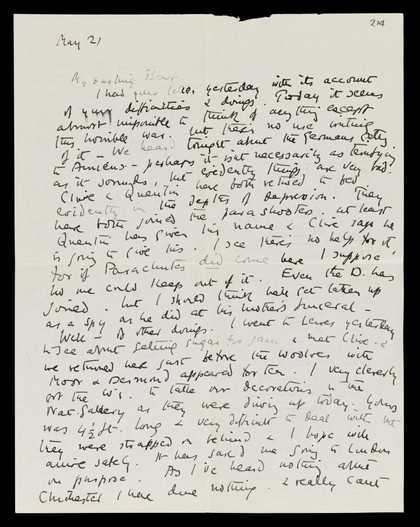 214
May 21
My darling
I had your letter yesterday with its account
of your difficulties & doings. Today it seems
almost impossible to think of anything except
this horrible war. but there's no use writing
of it - We heard tonight about the Germans getting
to Amiens - perhaps it isn't necessarily as terrifying
as it sounds, but evidently things are very bad.
Clive & Quentin have both retired to bed
evidently in the depths of depression. They
have both joined the parashooters. at least
Quentin has given his name & Clive says he
is going to give his. I see there's no help for it
for if Parachutes did come here I suppose
no one could keep out of it. Even the D. has
joined. but I should think he'll get taken up
as a spy as he did at his mother's funeral -
Well - to other doings. I went to Lewes yesterday
to see about getting sugar for jam & met Clive. &
we returned here just before the Woolves with
Moor & Desmond appeared for tea. I very cleverly
got the W's. to take our decorations to the
Nat. Gallery as they were driving up today. Yours
was 4½ ft. long & very difficult to deal with but
they were strapped on behind & I hope will
arrive safely. It has saved me going to London
on purpose. As I've heard nothing about
Chichester I have done nothing. & really can't